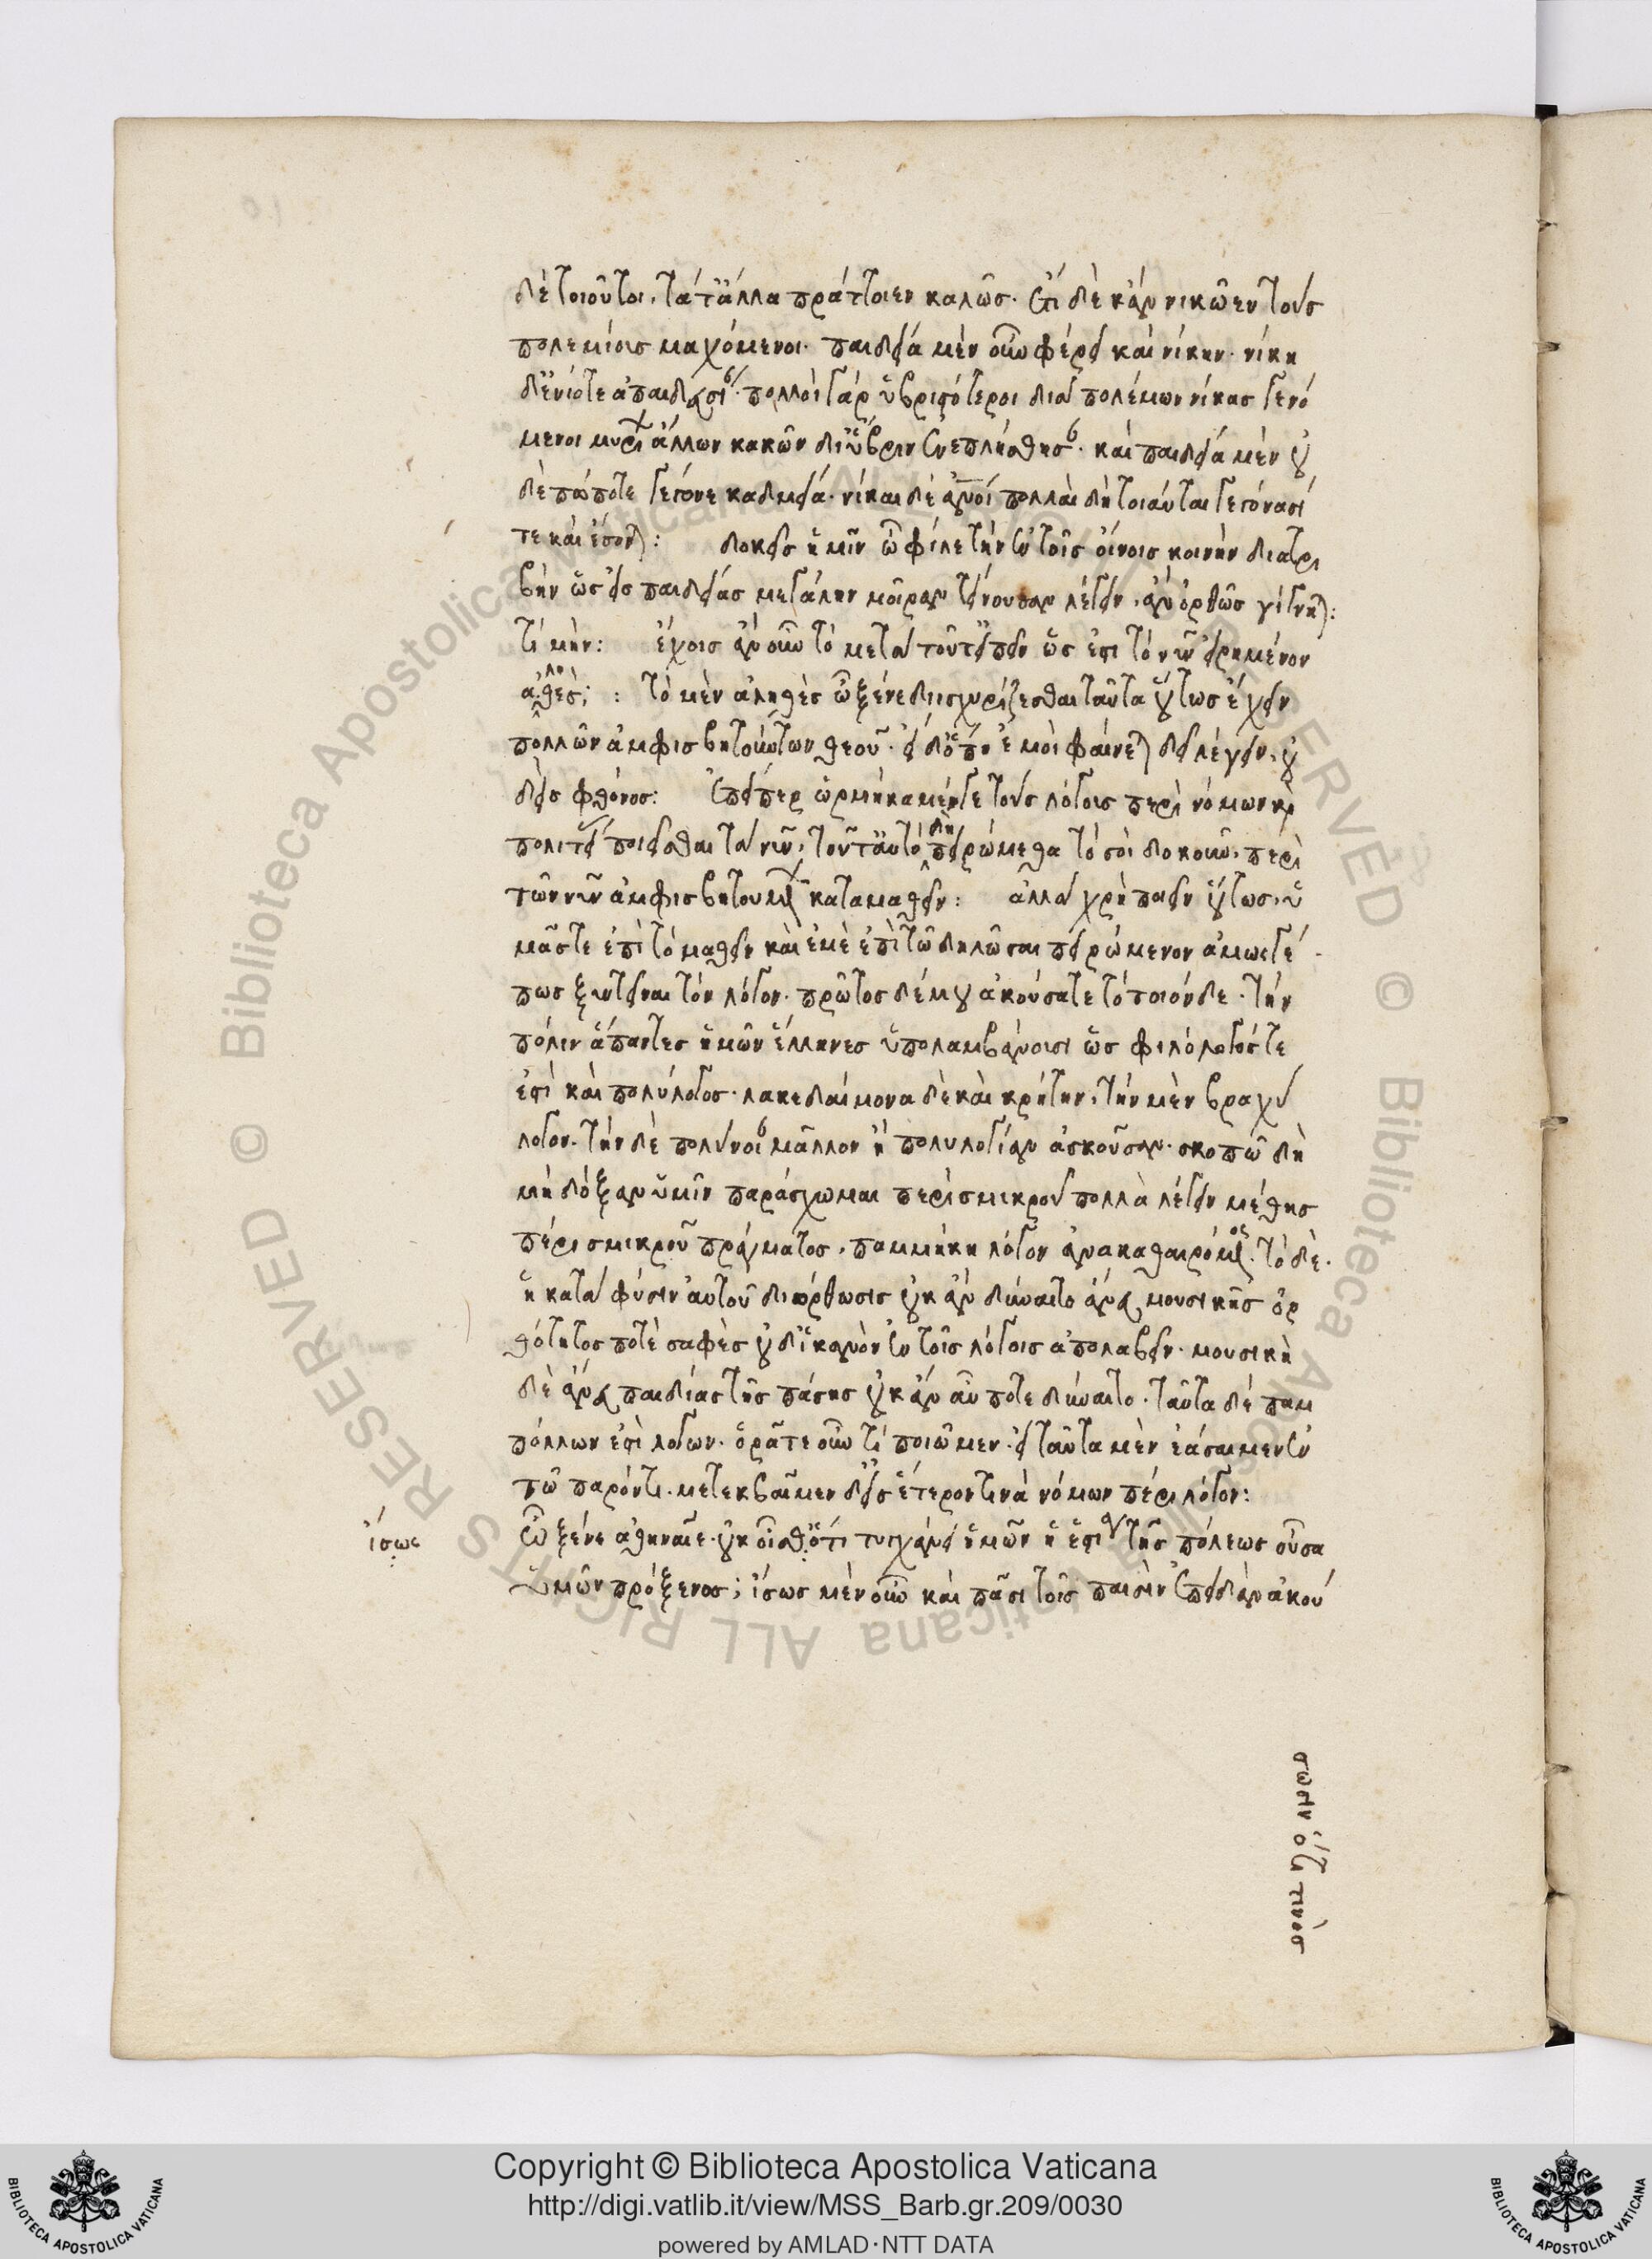 δὲ τοιοῦτοι, τά τἄλλα πράττοιεν καλῶς. ἔτι δὲ κἂν νικῶεν τοὺς
πολεμίους μαχόμενοι. παιδεία μὲν οὖν φέρει καὶ νίκην. νίκη
δ' ἐνίοτε ἀπαιδευσίαν. πολλοὶ γὰρ ὑβριστότεροι διὰ πολέμων νίκας γενό
μενοι μυρίων ἄλλων κακῶν δι' ὕβριν ἐνεπλήσθησαν. καὶ παιδεία μὲν οὐ
δὲ πώποτε γέγονε καδμεία. νίκαι δὲ ἀνοις πολλαὶ δὴ τοιαῦται γεγόνασί
τε καὶ ἔσονται: δοκεῖς ἡμῖν ὦ φίλε τὴν ἐν τοῖς οἴνοις κοινὴν διατρι
βὴν ὡς εἰς παιδείας μεγάλην μοῖραν τείνουσαν λέγειν, ἂν ὀρθῶς γίγνηται:
τί μήν: ἔχοις ἂν οὖν τὸ μετὰ τοῦτ' εἰπεῖν ὡς ἐστι τὸ νῦν εἰρημένον
ἀληθές; : τὸ μὲν ἀληθὲς ὦ ξένε διισχυρίζεσθαι ταῦτα οὕτως ἔχειν
πολλῶν ἀμφισβητούντων θεοῦ. εἰ δ' ὅπη ἐμοὶ φαίνεται δεῖ λέγειν, οὐ
δεὶς φθόνος: ἐπείπερ ὡρμήκαμέν γε τοὺς λόγους περὶ νόμων καὶ
πολιτείας ποιεῖσθαι τὰ νῦν, τοῦτ' αὐτὸ δὴ πειρώμεθα τὸ σοὶ δοκοῦν, περὶ
τῶν νῦν ἀμφισβητουμένων καταμαθεῖν: ἀλλὰ χρὴ ποιεῖν οὕτως, ὑ
μᾶς τε ἐπὶ τὸ μαθεῖν καὶ ἐμὲ ἐπὶ τῶ δηλῶσαι πειρώμενον ἀμωσγέ
πως ξυντεῖναι τὸν λόγον. πρῶτος δέ μου ἀκούσατε τὸ τοιόνδε. τὴν
πόλιν ἅπαντες ἡμῶν ἕλληνες ὑπολαμβάνουσι ὡς φιλόλογός τε
ἐστὶ καὶ πολύλογος. λακεδαίμονα δὲ καὶ κρήτην, τὴν μὲν βραχύ
λογον. τὴν δὲ πολύνοιαν μᾶλλον ἢ πολυλογίαν ἀσκοῦσαν. σκοπῶ δὴ
μὴ δόξαν ὑμῖν παράσχωμαι περὶ σμικροῦ πολλὰ λέγειν μέθης
πέρι σμικροῦ πράγματος, παμμήκη λόγον ἀνακαθαιρόμενος. τὸ δὲ.
ἡ κατὰ φύσιν αὐτοῦ διόρθωσις οὐκ ἂν δύναιτο ἄνευ μουσικῆς ὀρ
θότητος ποτὲ σαφὲς οὐδ' ἱκανὸν ἐν τοῖς λόγοις ἀπολαβεῖν. μουσικὴ
δὲ ἄνευ παιδίας τῆς πάσης οὐκ ἂν αὖ ποτε δύναιτο. ταῦτα δὲ παμ
πόλλων ἐστὶ λόγων. ὁρᾶτε οὖν τί ποιῶμεν. εἰ ταῦτα μὲν ἐάσαιμεν ἐν
τῶ παρόντι. μετεκβαῖμεν δ' εἰς ἕτερόν τινα νόμων πέρι λόγον:
ὦ ξένε ἀθηναῖε. οὐκ οἶσθ' ὅτι τυγχάνει ἡμῶν ἡ ἑστία τῆς πόλεως οὖσα
ὑμῶν πρόξενος; ἴσως μὲν οὖν καὶ πᾶσι τοῖς παισὶν ἐπειδὰν ἀκού
ἴσως
σωσιν ὅτι τινός
Copyright © Biblioteca Apostolica Vaticana
http://digi.vatlib.it/view/MSS_Barb.gr.209/0030
powered by AMLAD·NTT DATA
BIBLIOTECA APOSTOLICA VATICANA
BIBLIOTECA APOSTOLICA VATICANA
© Biblioteca Apostolica Vaticana ALL RIGHTS RESERVED